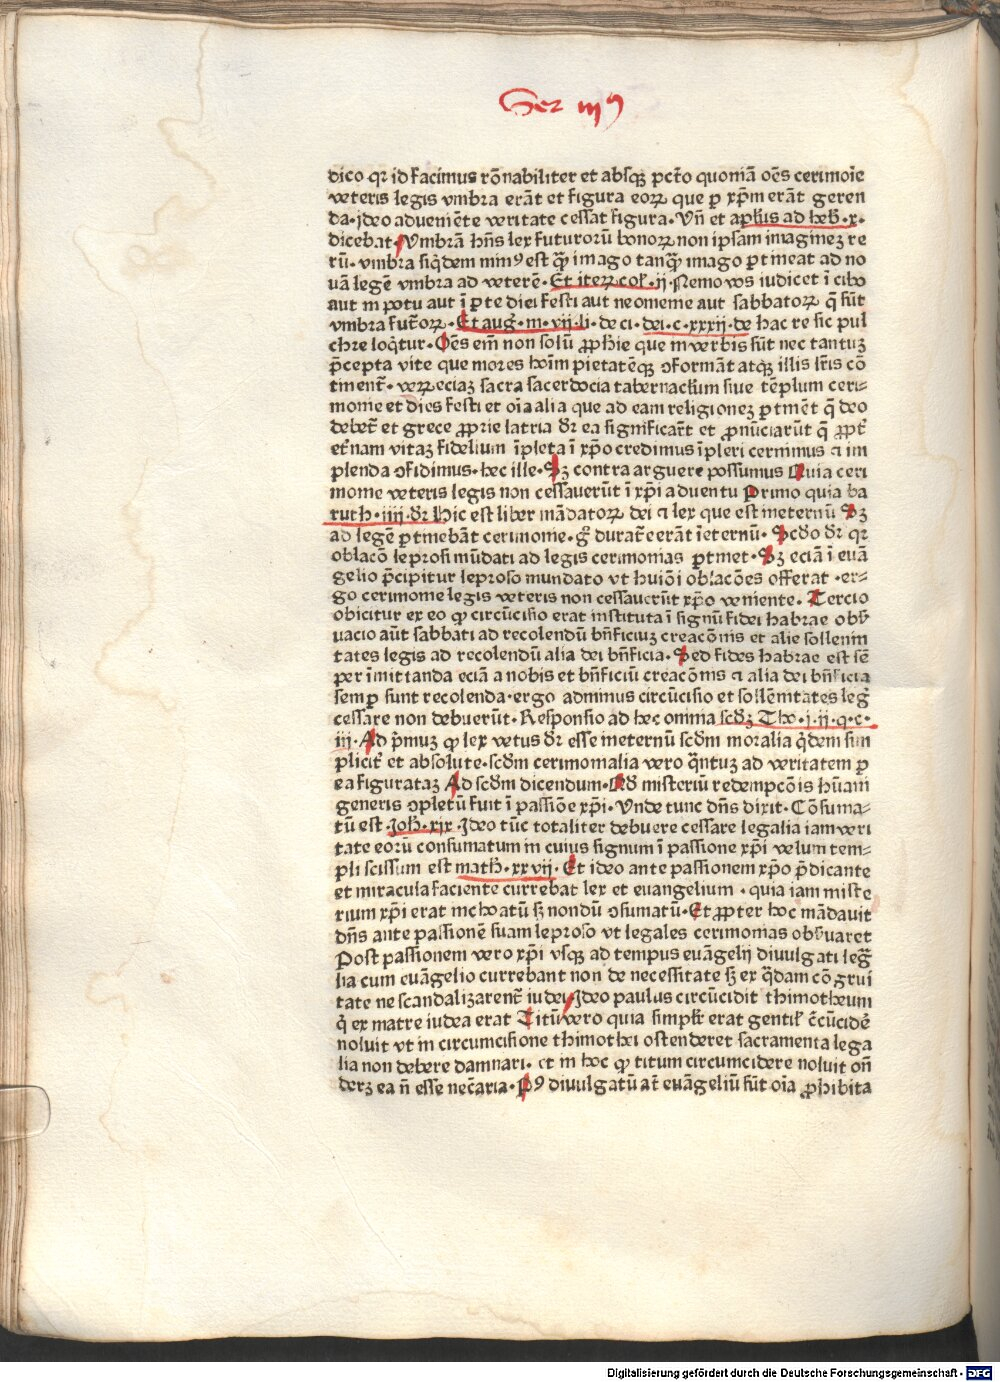 Ser iijꝰ
dico qꝛ id facimus rōnabiliter et absqꝫ pctō quoniā oēs cerimoīe
veteris legis vmbra erāt et figura eoꝝ que p xp̄m erāt geren
da·ideo adueniēte veritate cessat figura·Vn̄ et aplūs ad heb̄·x·
dicebat·Vmbrā hn̄s lex futuroꝝ bonoꝝ non ipsam imagineꝫ re
rū·vmbra siqͥdem minꝰ est qͣꝫ imago tanqͣꝫ imago ꝑtineat ad no
uā legē vmbra ad veterē·Et iteꝝ col̄·ij·Nemo vos iudicet ī cibo
aut in potu aut ī ꝑte diei festi aut neomenie aut sabbatoꝝ q̄ sūt
vmbra futoꝝ·Et auḡ·in·vij·li·de ci·dei·c·xxxij·de hac re sic pul
chre loqͥtur·Oēs em̄ non solū ꝓphīe que in verbis sūt nec tantuꝫ
p̄cepta vite que mores hoīm pietatēqꝫ ꝯformāt atqꝫ illis lr̄is cō
tinent̄·veꝝ eciaꝫ sacra sacerdocia tabernaclūm siue tēplum ceri⸗
monie et dies festi et oīa alia que ad eam religioneꝫ ꝑtinēt q̄ deo
debet̄ et grece ꝓprie latria dr̄ ea significart̄ et ꝓnūciarūt q̄ ꝓpt̄
et̄nam vitaꝫ fidelium īpleta ī xp̄o credimus īpleri cernimus ⁊ im
plenda ꝯfidimus·hec ille·Sꝫ contra arguere possumus Quia ceri
monie veteris legis non cessauerūt ī xp̄i aduentu Primo quia ba
ruth·iiij·dr̄ Hic est liber mādatoꝝ dei ⁊ lex que est ineternū Sꝫ
ad legē ꝑtinebāt cerimonie·gͦ durat̄e erāt īeternū·Scdo dr̄ qꝛ
oblacō leprosi mūdati ad legis cerimonias ꝑtinet·Sꝫ eciā ī euā
gelio p̄cipitur leproso mundato vt huiōi oblacōes offerat·er⸗
go cerimonie legis veteris non cessauerūt xp̄o veniente·Tercio
obicitur ex eo ꝙ circūcisio erat instituta ī signū fidei habrae obẜ
uacio aūt sabbati ad recolendū bn̄ficiuꝫ creacōnis et alie sollenni
tates legis ad recolendū alia dei bn̄ficia·Sed fides habrae est sē
per imittanda eciā a nobis et bn̄ficiū creacōnis ⁊ alia dei bn̄ficia
semꝑ sunt recolenda·ergo adminus circūcisio et sollēnitates leḡ
cessare non debuerūt·Responsio ad hec omnia scdꝫ Tho·i·ij·q·c·
iij·Ad p̄muꝫ ꝙ lex vetus dr̄ esse ineternū scdm moralia qͥdem sim
plicit̄ et absolute·scdm cerimonialia vero qͣntuꝫ ad veritatem ꝑ
ea figurataꝫ Ad scdm dicendum·Qd̄ misteriū redempcōis hūani
generis ꝯpletū fuit ī passiōe xp̄i·Vnde tunc dn̄s dixit·Cōsuma⸗
tū est·Joh̄·xix·Ideo tūc totaliter debuere cessare legalia iam veri
tate eorū consumatum in cuius signum ī passione xp̄i velum tem⸗
pli scissum est math̄·xxvij·Et ideo ante passionem xp̄o p̄dicante
et miracula faciente currebat lex et euangelium·quia iam miste
rium xp̄i erat inchoatū sꝫ nondū ꝯsumatū·Et ꝓpter hoc mādauit
dn̄s ante passionē suam leproso vt legales cerimonias obẜuaret
Post passionem vero xp̄i vsqꝫ ad tempus euāgelij diuulgati leḡ
lia cum euāgelio currebant non de necessitate sꝫ ex qͣdam cōgrui
tate ne scandalizarent̄ iudei Ideo paulus circūcidit thimotheum
qͥ ex matre iudea erat Titū vero quia simplr̄ erat gentil̄ cc̄ūcidē
noluit vt in circumcisione thimothei ostenderet sacramenta lega
lia non debere damnari·et in hoc ꝙ titum circumcidere noluit on̄
dereꝫ ea n̄ esse nec̄aria·Pꝰ diuulgatū at̄ euāgeliū sūt oīa ꝓhibita
Digitalisierung gefördert durch die Deutsche Forschungsgemeinschaft - DFG